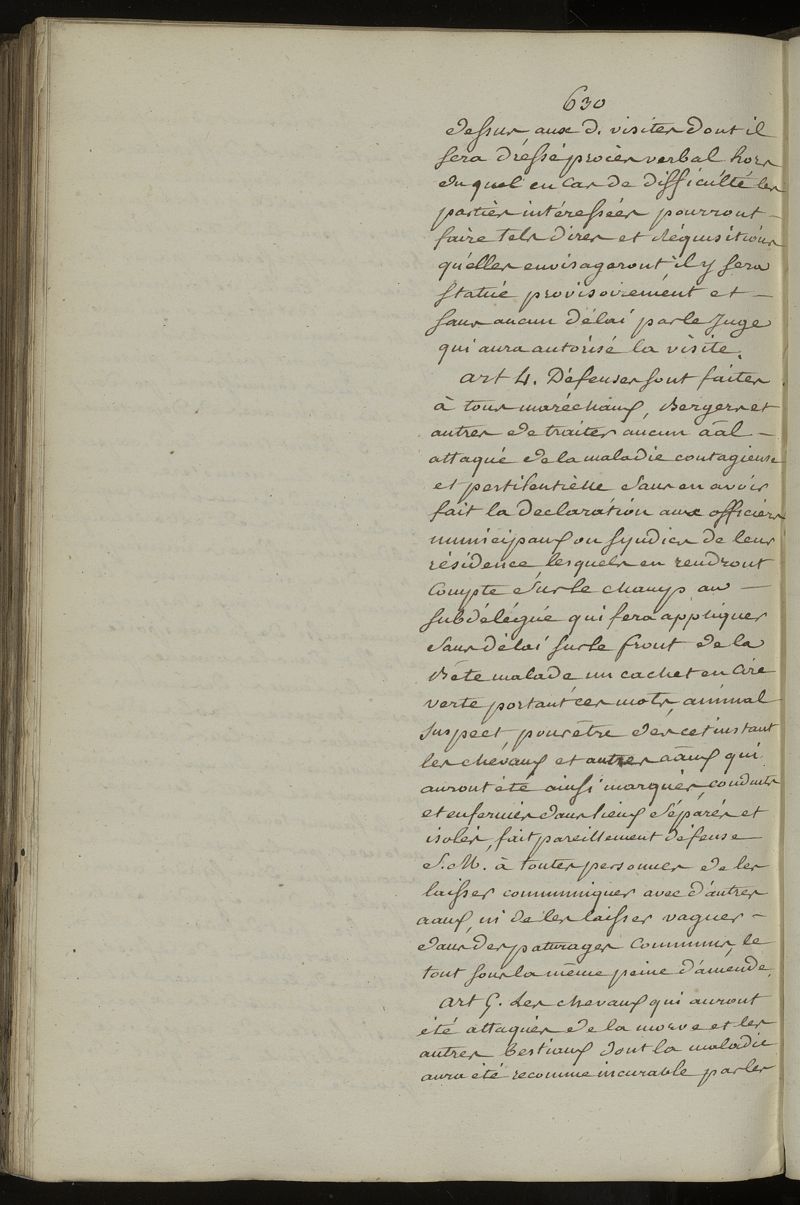 630
dessus aux d. visites dont il
sera dréssé procès verbal hors
du quel en cas de difficulté les
parties intéressées pourront –
faire tels dires et réquisitions
qu'elles envisageront il y sera
statué provisoirement et –
sans aucun délai par le Juge
qui aura autorisé la visite.
art 4. Défenses sont faites
à tous maréchaux, Bergers et
autres de traiter aucun aãl –
attaqué de la maladie contagieuse
et pestilentielle sans en avoir
fait la declaration aux officiers
municipaux ou syndics de leur
résidence, lesquels en rendront
Compte sur le champ au –
subdélégué qui fera appliquer
sans délai sur le front de la
Bête malade un cachet en Cire
verte portant ces mots, animal
suspect, pour être dès cet instant
les chevaux et autres aãux qui
auront été ainsi marqués, conduits
et enfermés dans lieux séparés et
isolés, fait pareillement défense
S. M. à toutes personnes de les
laisser communiquer avec d'autres
aaux, ni de les laisser vaguer –
dans des paturages Communs, le
tout sous la même peine d'amende.
art 5. Les chevaux qui auront
été attaqués de la morve et les
autres bestiaux dont la maladie
aura été reconnue incurable par les